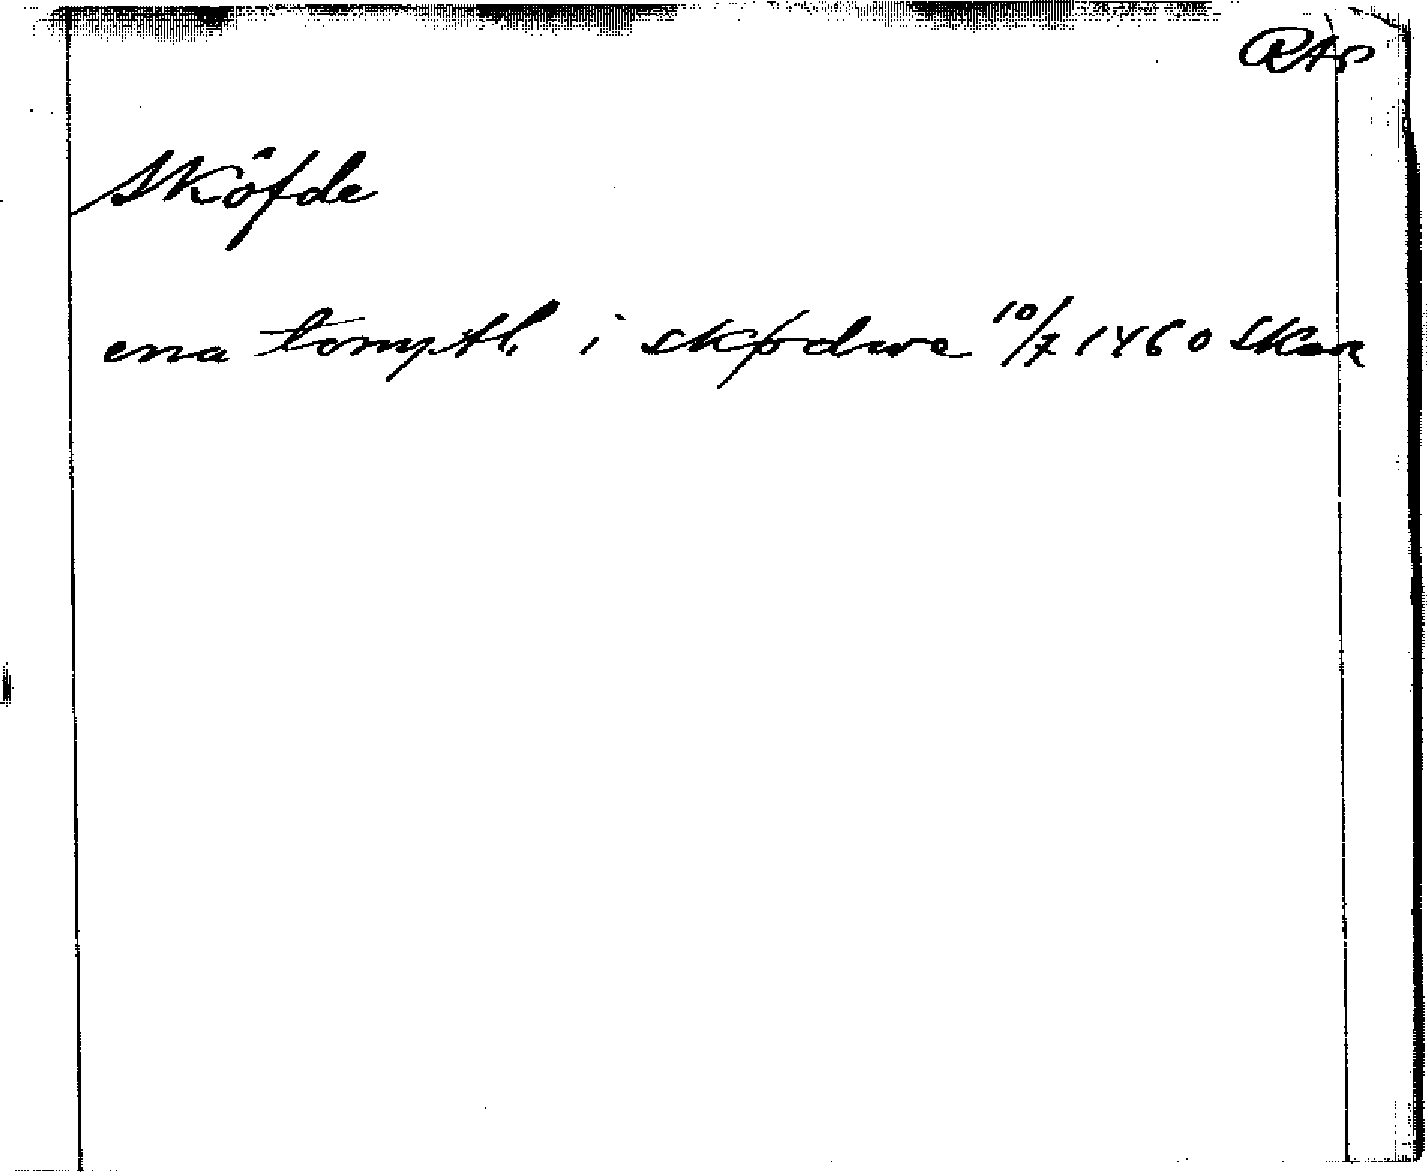 RAp
Sköfde
ena tompth i skødwe 10/7 1460 Skara